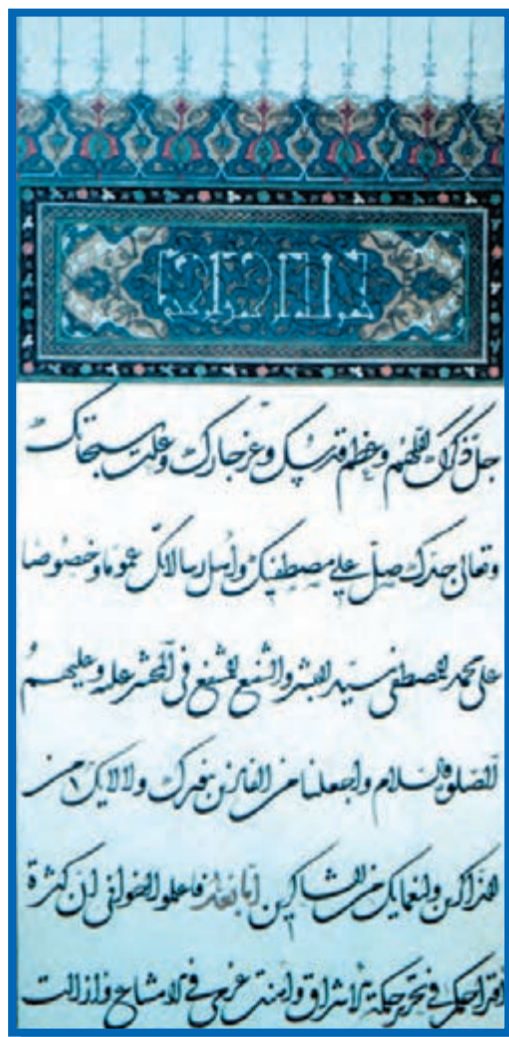 جل ذكرك اللهم وعظم قدسك وعز جارك وعلت سبحاتك
وتعالى جدك صل على مصطفيك وأهل رسالاتك عموما وخصوصا
على محمد المصطفى سيد البشر والشفيع المشفع في المحشر عليه وعليهم
الصلوة والسلام واجعلنا من الفائزين بنورك ولآلائك من
الذاكرين ولنعمايك من الشاكرين أما بعد فاعلموا اخواني ان كثرة
اقتراحكم في تحرير حكمة الاشراق وهنت عزمي في الامتناع وازالت